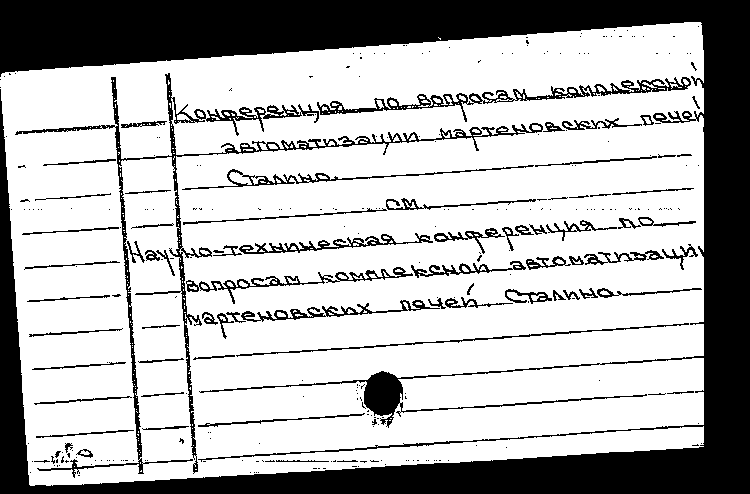 Конференция по вопросам комплексной
автоматизации мартеновских печей
Сталино.
см.
Научно-техническая конференция по
вопросам комплексной автоматизации
мартеновских печей. Сталино.